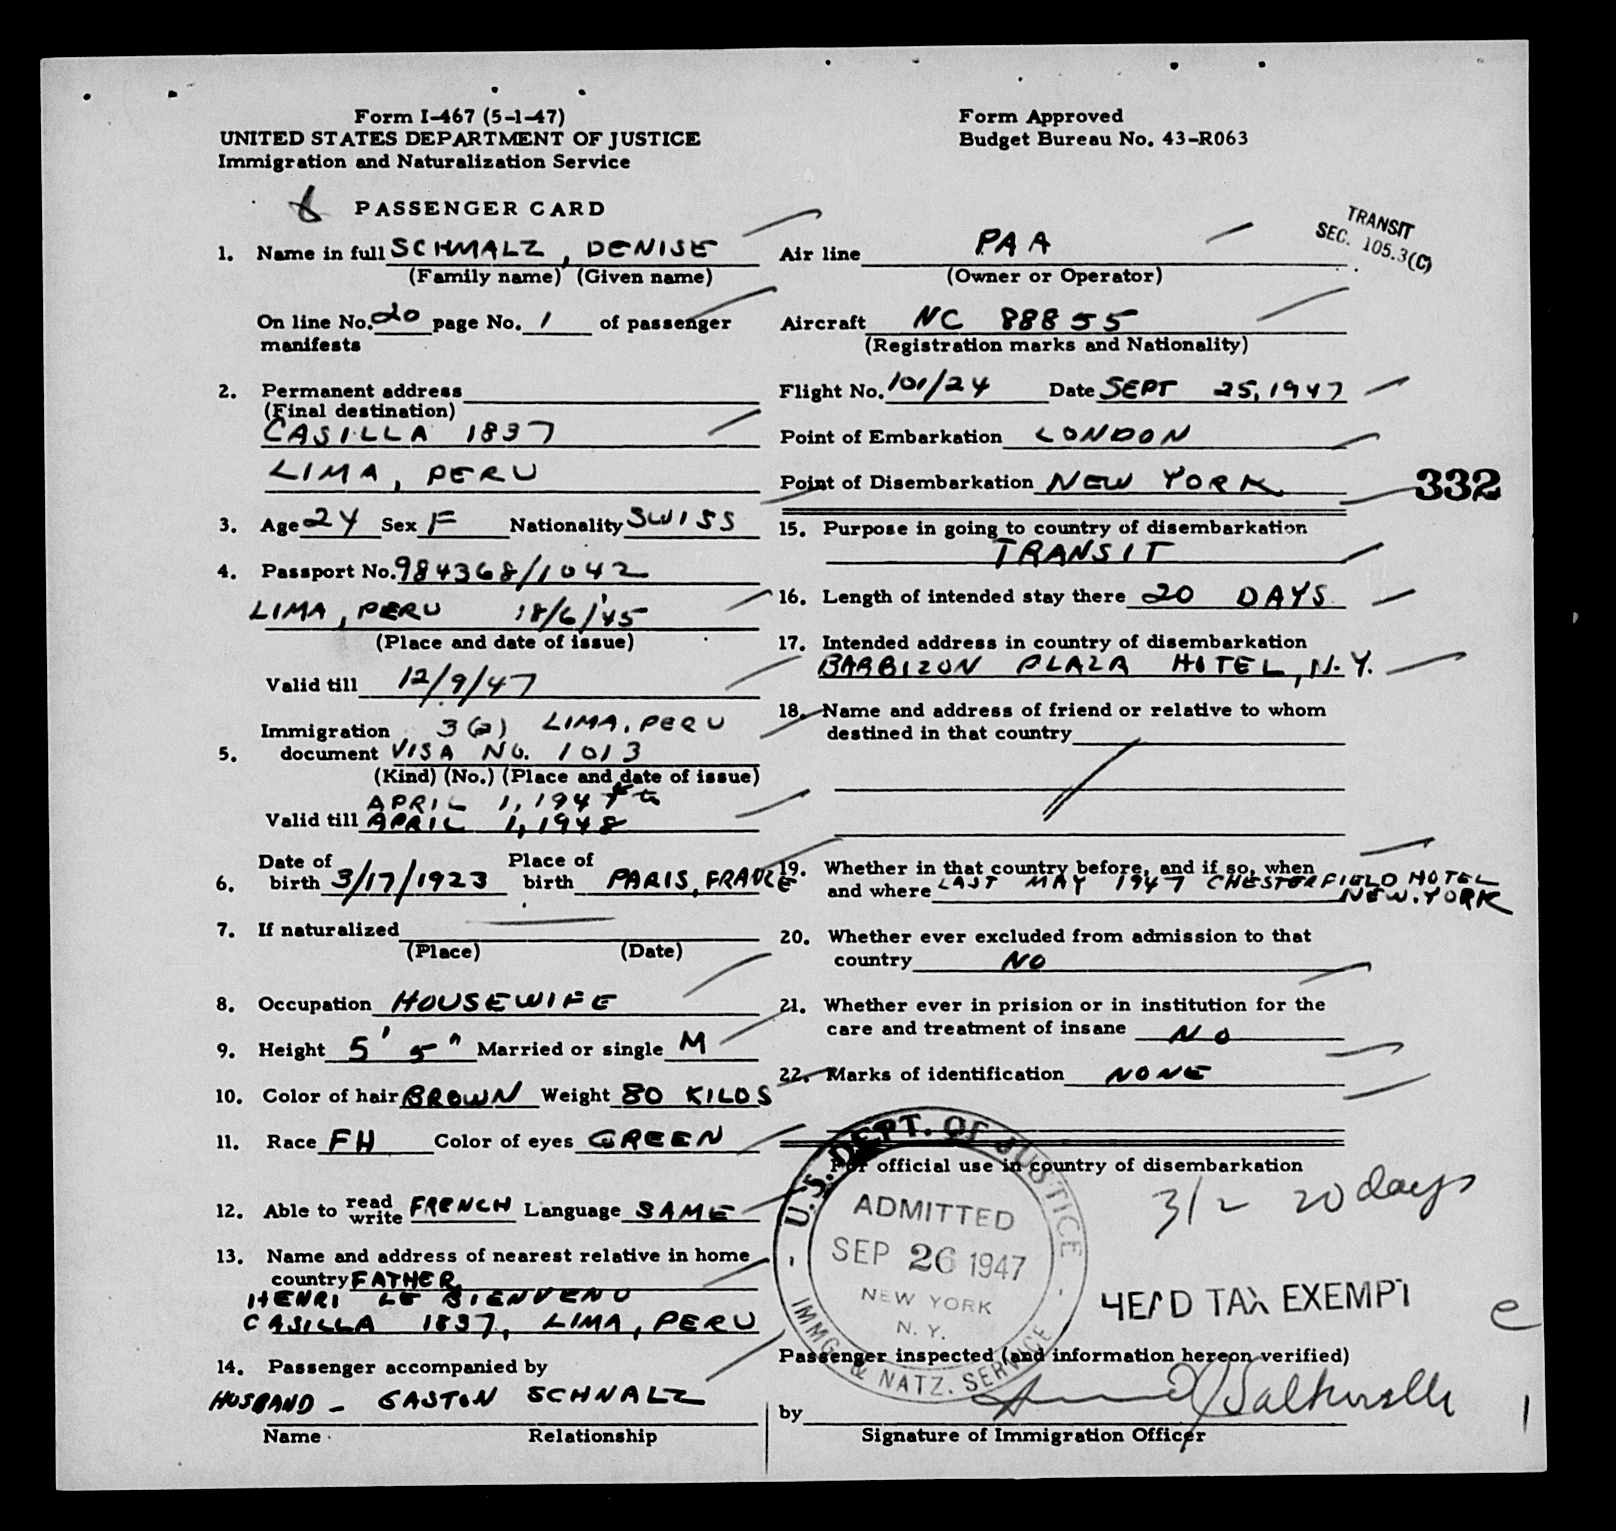 Form I-467 (5-1-47)
UNITED STATES DEPARTMENT OF JUSTICE
Immigration and Naturalization Service
Form Approved
Budget Bureau No. 43-R063
PASSENGER CARD
TRANSIT
SEC. 105.3(C)
1. Name in full SCHMALZ, DENISE
(Family name) (Given name)
On line No. 20 page No. 1 of passenger
manifests
2. Permanent address
(Final destination)
CASILLA 1837
LIMA, PERU
3. Age 24 Sex F Nationality SWISS
4. Passport No. 984368/1042
LIMA, PERU 18/6/'45
(Place and date of issue)
Valid till 12/9/47
Immigration 3(2) LIMA, PERU
5. document VISA NO. 1013
(Kind) (No.) (Place and date of issue)
APRIL 1, 1947 to
Valid till APRIL 1, 1948
Date of Place of
6. birth 3/17/1923 birth PARIS, FRANCE
7. If naturalized
(Place) (Date)
8. Occupation HOUSEWIFE
9. Height 5' 5" Married or single M
10. Color of hair BROWN Weight 80 KILOS
11. Race FH Color of eyes GREEN
12. Able to read write FRENCH Language SAME
13. Name and address of nearest relative in home
country FATHER,
HENRI LE BIENVENU
CASILLA 1837, LIMA, PERU
14. Passenger accompanied by
HUSBAND - GASTON SCHNALZ
Name Relationship
Air line PAA
(Owner or Operator)
Aircraft NC 88855
(Registration marks and Nationality)
Flight No. 101/24 Date SEPT 25, 1947
Point of Embarkation LONDON
Point of Disembarkation NEW YORK
332
15. Purpose in going to country of disembarkation
TRANSIT
16. Length of intended stay there 20 DAYS
17. Intended address in country of disembarkation
BARBIZON PLAZA HOTEL, N.Y.
18. Name and address of friend or relative to whom
destined in that country
19. Whether in that country before, and if so, when
and where LAST MAY 1947 CHESTERFIELD HOTEL
NEW.YORK
20. Whether ever excluded from admission to that
country NO
21. Whether ever in prision or in institution for the
care and treatment of insane NO
22. Marks of identification NONE
For official use in country of disembarkation
3/2 20 days
U.S. DEPT. OF JUSTICE
ADMITTED
SEP 26 1947
NEW YORK
N. Y.
IMMG. & NATZ. SERVICE
HEAD TAX EXEMPT
Passenger inspected (and information hereon verified)
by
Signature of Immigration Officer